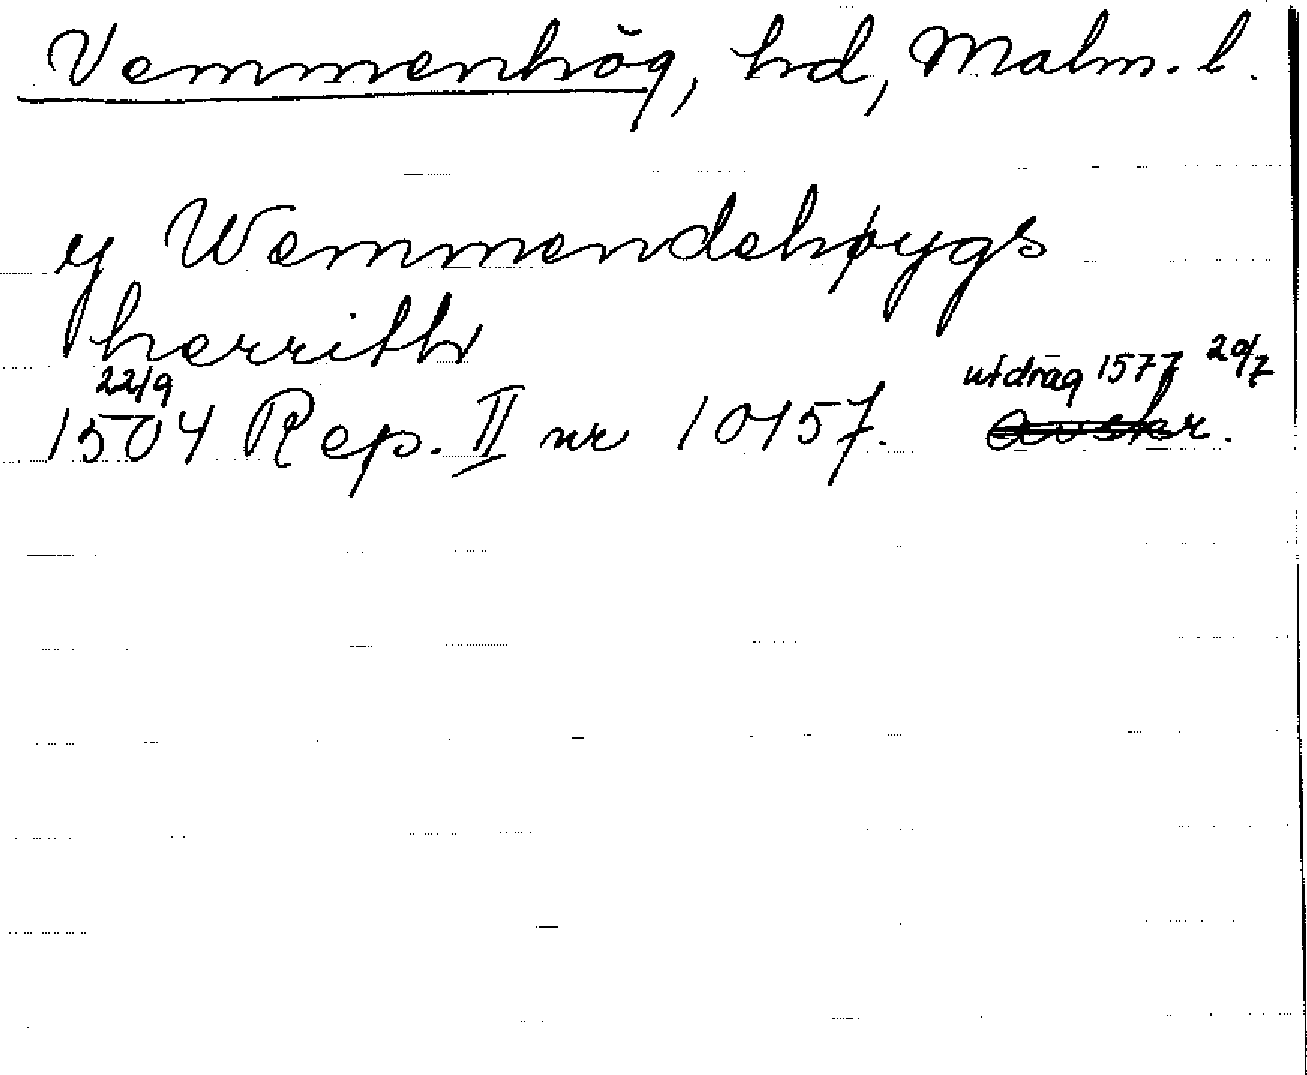 Vemmenhög, hd, Malm. l.
y Wemmendehøygs
herrith
22/9 utdrag 1577 20/7
1504 Rep. II nr 10457. avskr.